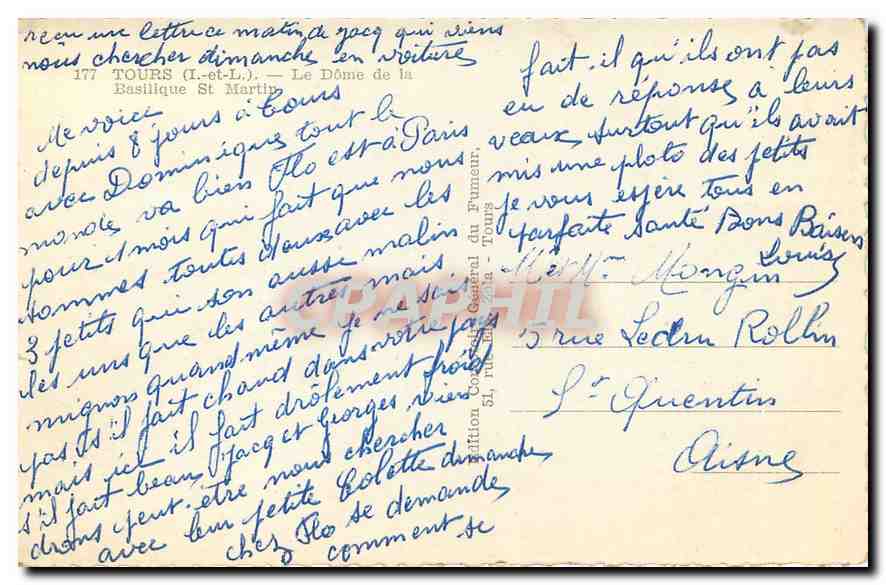 reçu une lettre ce matin de jacq qui viens
nous chercher dimanche en voiture
177 TOURS (I.-et-L.). — Le Dôme de la
Basilique St Martin
Me voice
depuis 8 jours à Tours
avec Dominique tout le
monde va bien Flo est à Paris
pour 1 mois qui fait que nous
sommes toutes deux avec les
3 petits qui son ausse malin
les uns que les autres mais
mignon quand même je ne sais
pas s'il fait chaud dans votre pays
mais ici il fait drôlement froid
s'il fait beau Jacq et Georges viens
drons peut-être nous chercher
avec leur petite Colette dimanche
chez Flo se demande
comment se
fait-il qu'ils ont pas
eu de réponse à leurs
veaux surtout qu'ils avait
mis une photo des petits
je vous espère tous en
parfaite santé Bons Baisers
Louise
Edition Comptoir Général du Fumeur,
51, rue Emile Zola - Tours
CPAPHIL
M et Mme Mongin
5 rue Ledru Rollin
St Quentin
Aisne